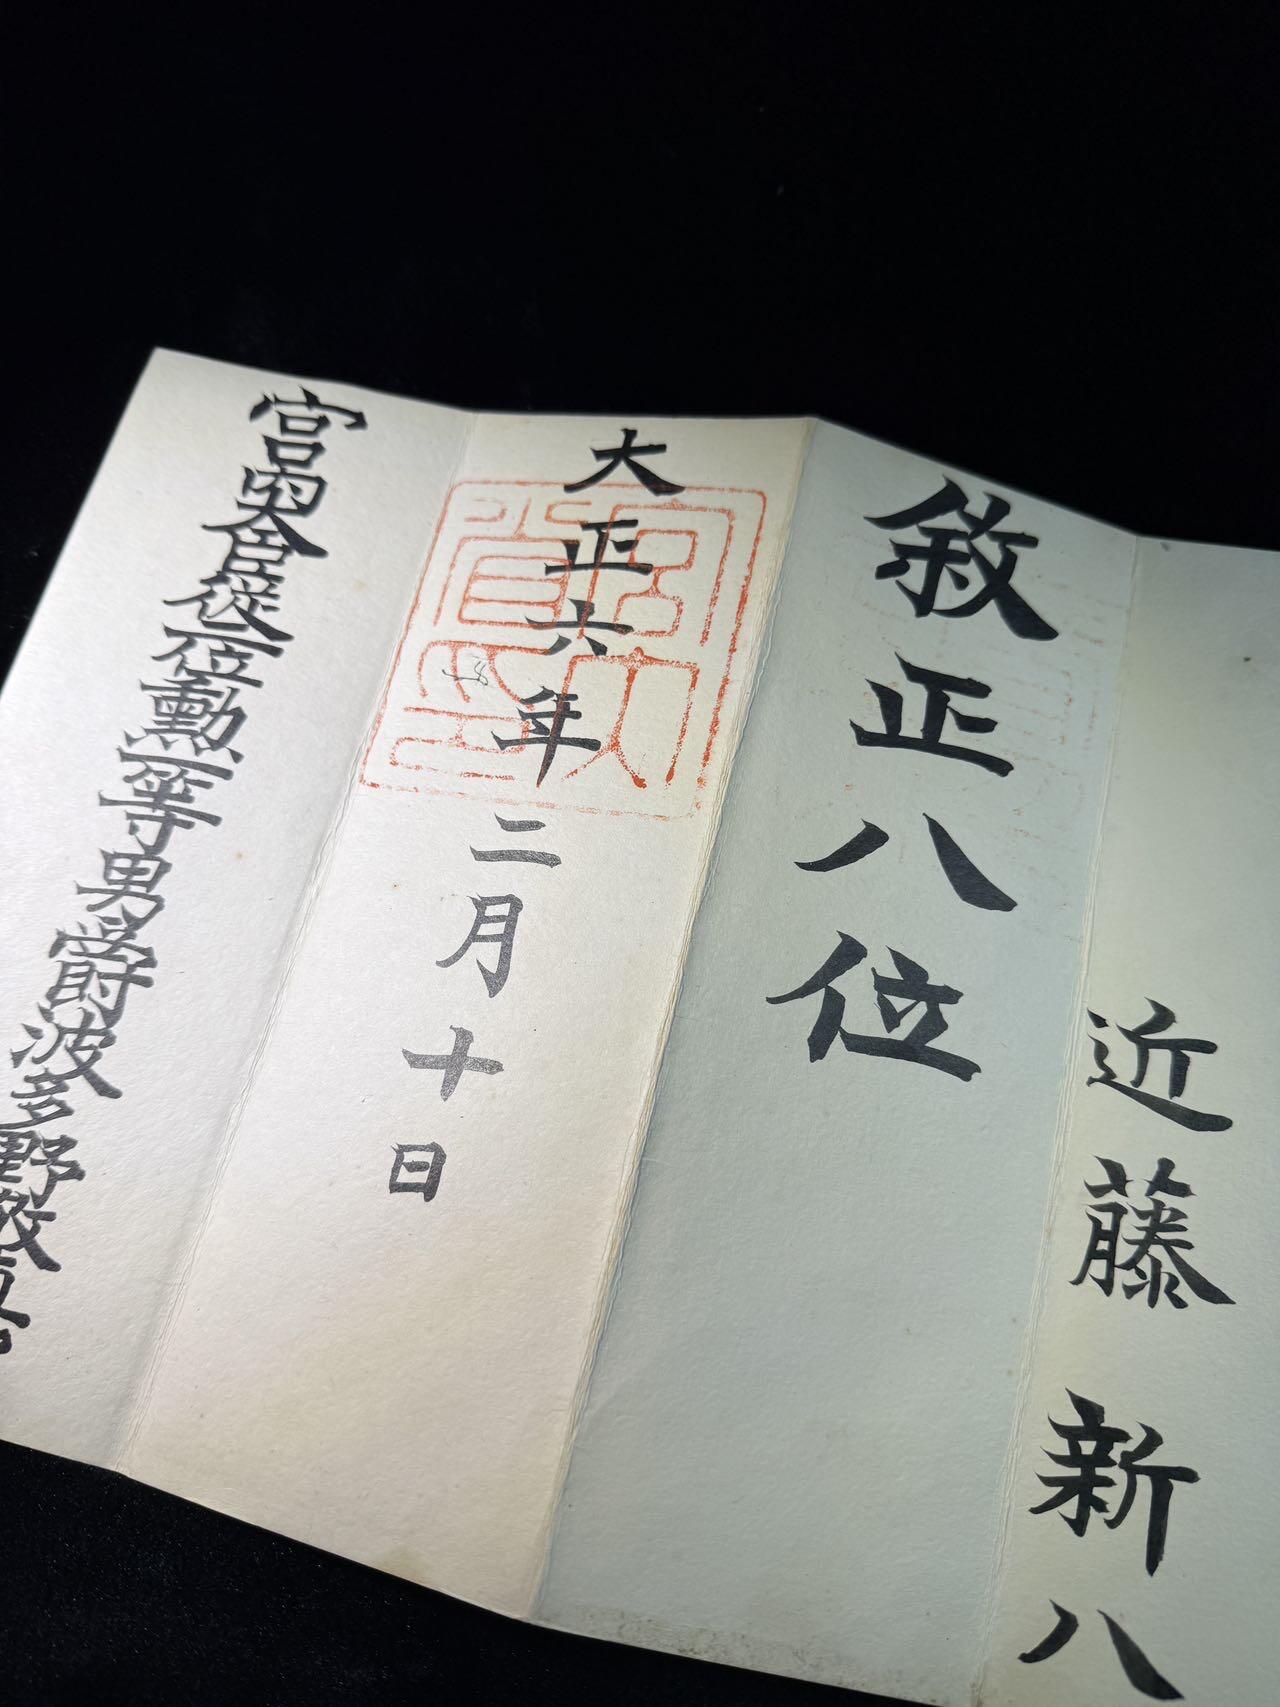 近藤新八
敘正八位
大正六年二月十日
宮內大臣從二位勳一等男爵波多野敬直
宮內省印